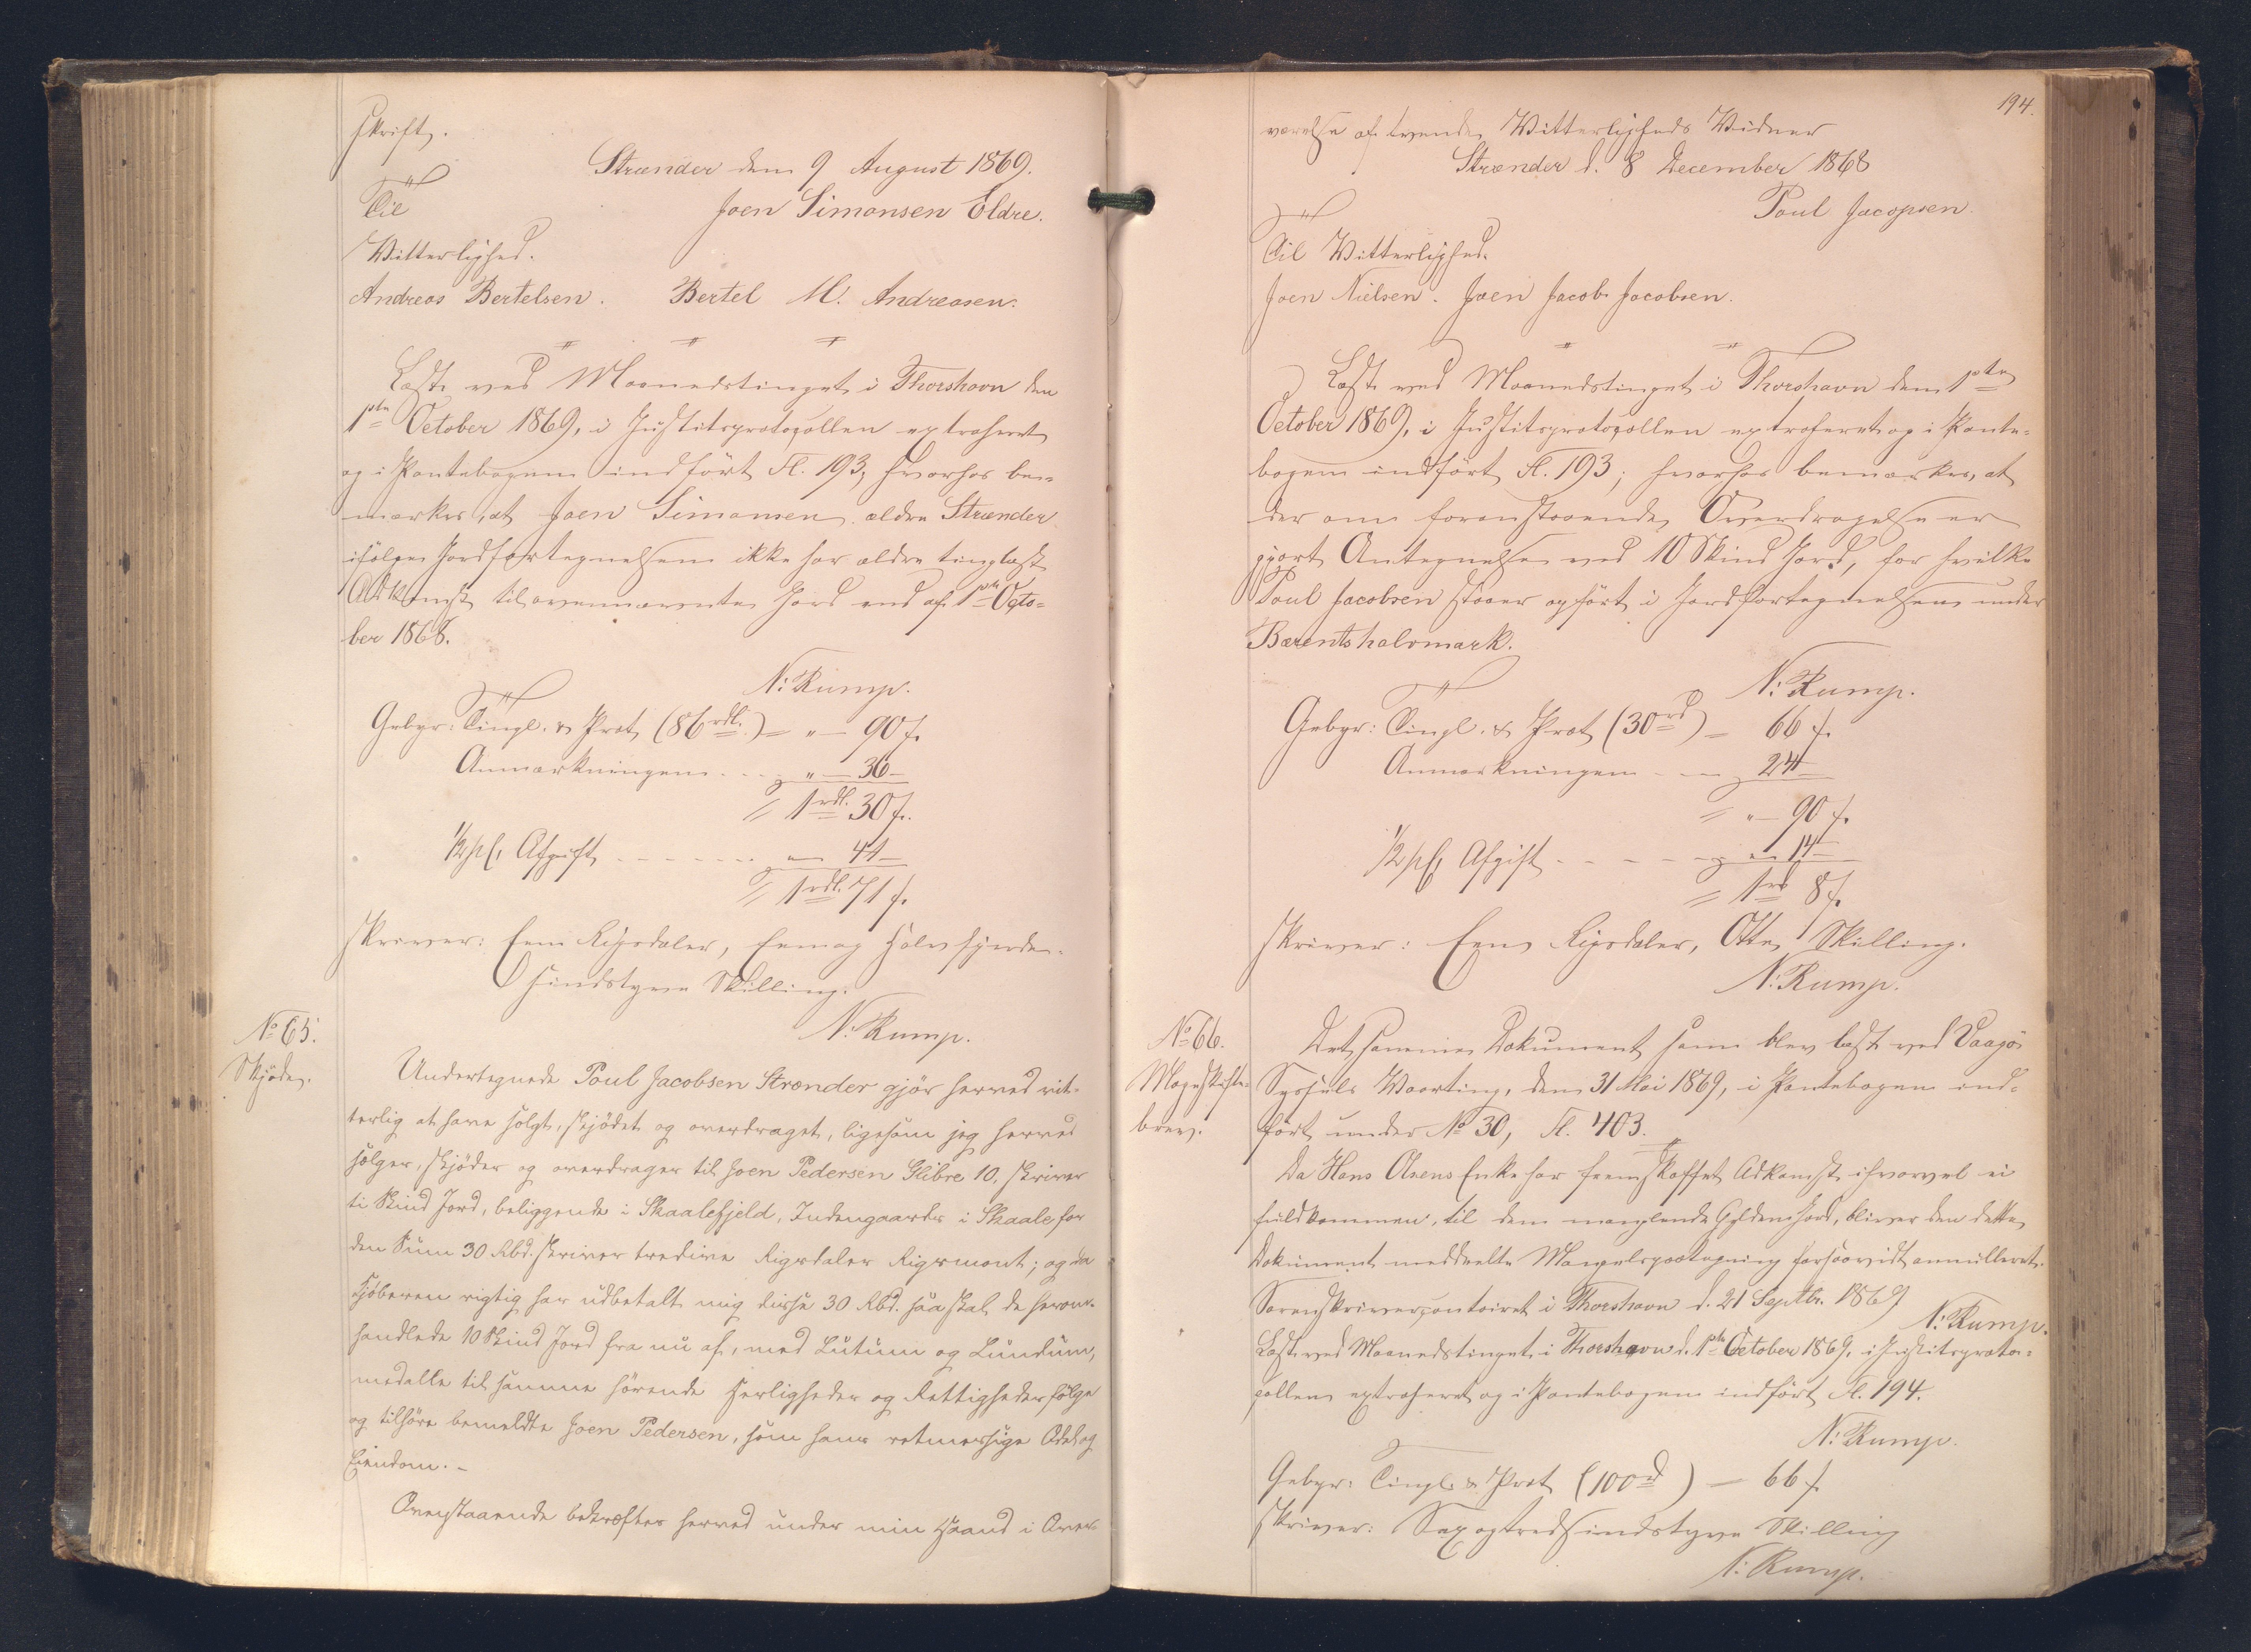 Skrift.
Strænder den 9 August 1869.
Joen Simonsen Eldre.
Til
Vitterlighed.
Andreas Bertelsen. Bertel M. Andreasen.
Læst ved Maanedstinget i Thorshavn den
1ste October 1869, i Justitsprotocollen extraheret
og i Pantebogen indført Fl. 193; hvorhos be-
mærkes, at Joen Simonsen ældre Strænder
ifølge Jordfortegnelsen ikke har ældre tinglæst
Adkomst til ovennævnte Jord end af 1ste Octo-
ber 1868.
N. Rump.
Gebyr: Tingl. & Prot (86 rdl.) = " — 90 s.
Anmærkningen - - - " — 36 —
= 1 rdl. 30 s.
1/2 pCt Afgift - - - - - - 41 —
= 1 rdl. 71 s.
skriver: Een Rigsdaler, Een og Halvfjerde-
sindstyve Skilling.
N. Rump.
No 65.
Skjøde.
Undertegnede Poul Jacobsen Strænder gjør herved vit-
terlig at have solgt, skjødet og overdraget, ligesom jeg herved
sælger, skjøder og overdrager til Joen Pedersen Glibre 10, skriver
ti Skind Jord, beliggende i Skaalefjeld, Indengaards i Skaale for
den Sum 30 Rbd. skriver tredive Rigsdaler Rigsmønt; og da
Kjøberen rigtig har udbetalt mig disse 30 Rbd. saa skal de herom-
handlede 10 Skind Jord fra nu af, med Lutum og Lundum,
med alle til samme hørende Herligheder og Rettigheder følge
og tilhøre bemeldte Joen Pedersen, som hans retmæssige Odel og
Eiendom. -
Ovenstaaende bekræftes herved under min Haand i Over-
194.
værelse af tvende Vitterligheds Vidner
Strænder d. 8 December 1868
Poul Jacopsen.
Til Vitterlighed.
Joen Nielsen. Joen Jacob Jacobsen.
Læst ved Maanedstinget i Thorshavn den 1ste
October 1869, i Justitsprotocollen extraheret og i Pante-
bogen indført Fl. 193; hvorhos bemærkes, at
der om foranstaaende Overdragelse er
gjort Antegnelse ved 10 Skind Jord, for hvilke
Poul Jacobsen staaer opført i Jordfortegnelsen under
Bærentshalvmark.
N. Rump.
Gebyr: Tingl. & Prot (30 rd) = 66 s.
Anmærkningen - - 24 —
= " — 90 s.
1/2 pCt Afgift - - - - - 14 —
= 1 rd 8 s.
skriver: Een Rigsdaler, Otte Skilling.
N. Rump.
No 66.
Mageskifte-
brev.
Det samme Dokument som blev læst ved Vaagø
Syssels Vaarting, den 31 Mai 1869, i Pantebogen ind-
ført under No 30, Fl. 403.
Da Hans Olsens Enke har fremskaffet Adkomst ihvorvel ei
fuldkommen, til den manglende Gylden Jord, bliver den dette
Dokument meddeelte Mangelspaategning forsaavidt annulleret.
Sorenskrivercontoiret i Thorshavn d. 21 Septbr. 1869
N. Rump.
Læst ved Maanedstinget i Thorshavn d. 1ste October 1869, i Justitsproto-
collen extraheret og i Pantebogen indført Fl. 194.
N. Rump.
Gebyr: Tingl. & Prot (100 rd) — 66 s
skriver: Sex og tredsindstyve Skilling
N. Rump.